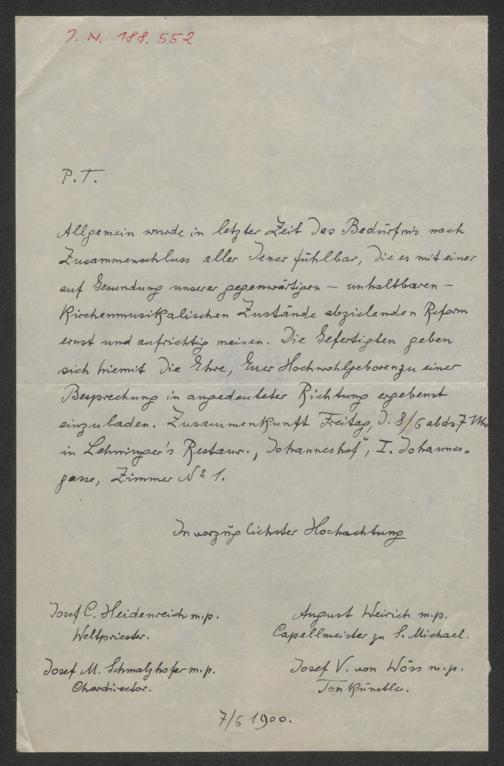 I. N. 188.552
P. T.
Allgemein wurde in letzter Zeit das Bedürfnis nach
Zusammenschluss aller Jener fühlbar, die es mit einer
auf Gesundung unserer gegenwärtigen – unhaltbaren –
kirchenmusikalischen Zustände abzielenden Reform
ernst und aufrichtig meinen. Die Gefertigten geben
sich hiemit die Ehre, Euer Hochwohlgeboren zu einer
Besprechung in angedeuteter Richtung ergebenst
einzuladen. Zusammenkunft Freitag, d. 8/6 abds. 7 Uhr
in Lehninger's Restaur. „Johanneshof", I. Johannes=
gasse, Zimmer No 1.
In vorzüglichster Hochachtung
Josef C. Heidenreich m.p.
Weltpriester.
August Weirich m.p.
Capellmeister zu S. Michael.
Josef M. Schmalzhofer m.p.
Chordirector.
Josef V. von Wöss m.p.
Tonkünstler.
7/6 1900.